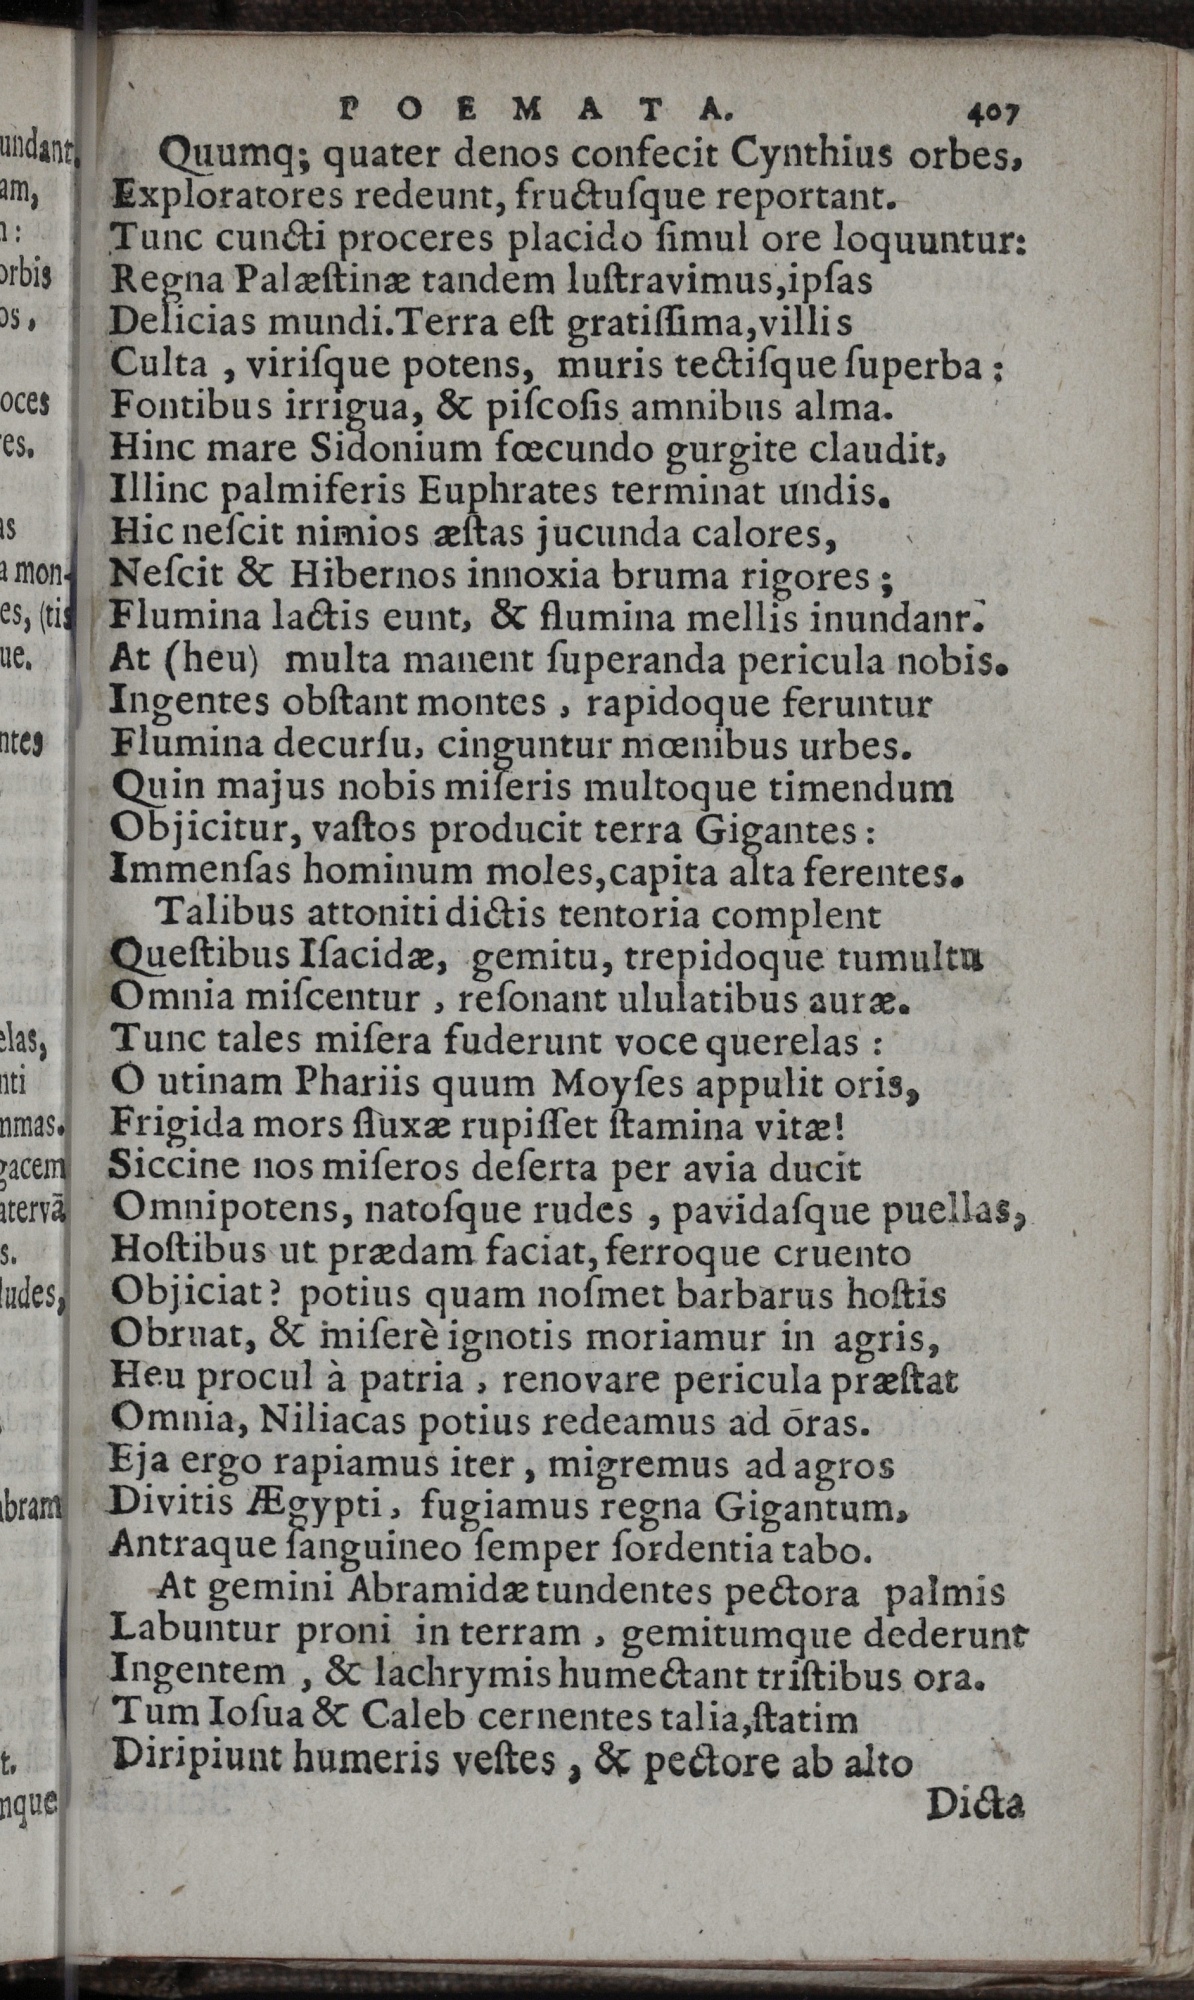 POEMATA. 407
Quumq; quater denos confecit Cynthius orbes,
Exploratores redeunt, fructuſque reportant.
Tunc cuncti proceres placido ſimul ore loquuntur:
Regna Palæſtinæ tandem luſtravimus,ipſas
Delicias mundi.Terra eſt gratiſſima,villis
Culta , viriſque potens, muris tectiſque ſuperba ;
Fontibus irrigua, & piſcoſis amnibus alma.
Hinc mare Sidonium fœcundo gurgite claudit,
Illinc palmiferis Euphrates terminat undis.
Hic neſcit nimios æſtas jucunda calores,
Neſcit & Hibernos innoxia bruma rigores ;
Flumina lactis eunt, & flumina mellis inundant.
At (heu) multa manent ſuperanda pericula nobis.
Ingentes obſtant montes , rapidoque feruntur
Flumina decurſu, cinguntur mœnibus urbes.
Quin majus nobis miſeris multoque timendum
Objicitur, vaſtos producit terra Gigantes:
Immenſas hominum moles,capita alta ferentes.
Talibus attoniti dictis tentoria complent
Queſtibus Iſacidæ, gemitu, trepidoque tumultu
Omnia miſcentur , reſonant ululatibus auræ.
Tunc tales miſera fuderunt voce querelas :
O utinam Phariis quum Moyſes appulit oris,
Frigida mors fluxæ rupiſſet ſtamina vitæ!
Siccine nos miſeros deſerta per avia ducit
Omnipotens, natoſque rudes , pavidaſque puellas,
Hoſtibus ut prædam faciat, ferroque cruento
Objiciat? potius quam noſmet barbarus hoſtis
Obruat, & miſerè ignotis moriamur in agris,
Heu procul à patria , renovare pericula præſtat
Omnia, Niliacas potius redeamus ad ōras.
Eja ergo rapiamus iter , migremus ad agros
Divitis Ægypti, fugiamus regna Gigantum,
Antraque ſanguineo ſemper ſordentia tabo.
At gemini Abramidæ tundentes pectora palmis
Labuntur proni in terram , gemitumque dederunt
Ingentem , & lachrymis humectant triſtibus ora.
Tum Ioſua & Caleb cernentes talia,ſtatim
Diripiunt humeris veſtes , & pectore ab alto
Dicta